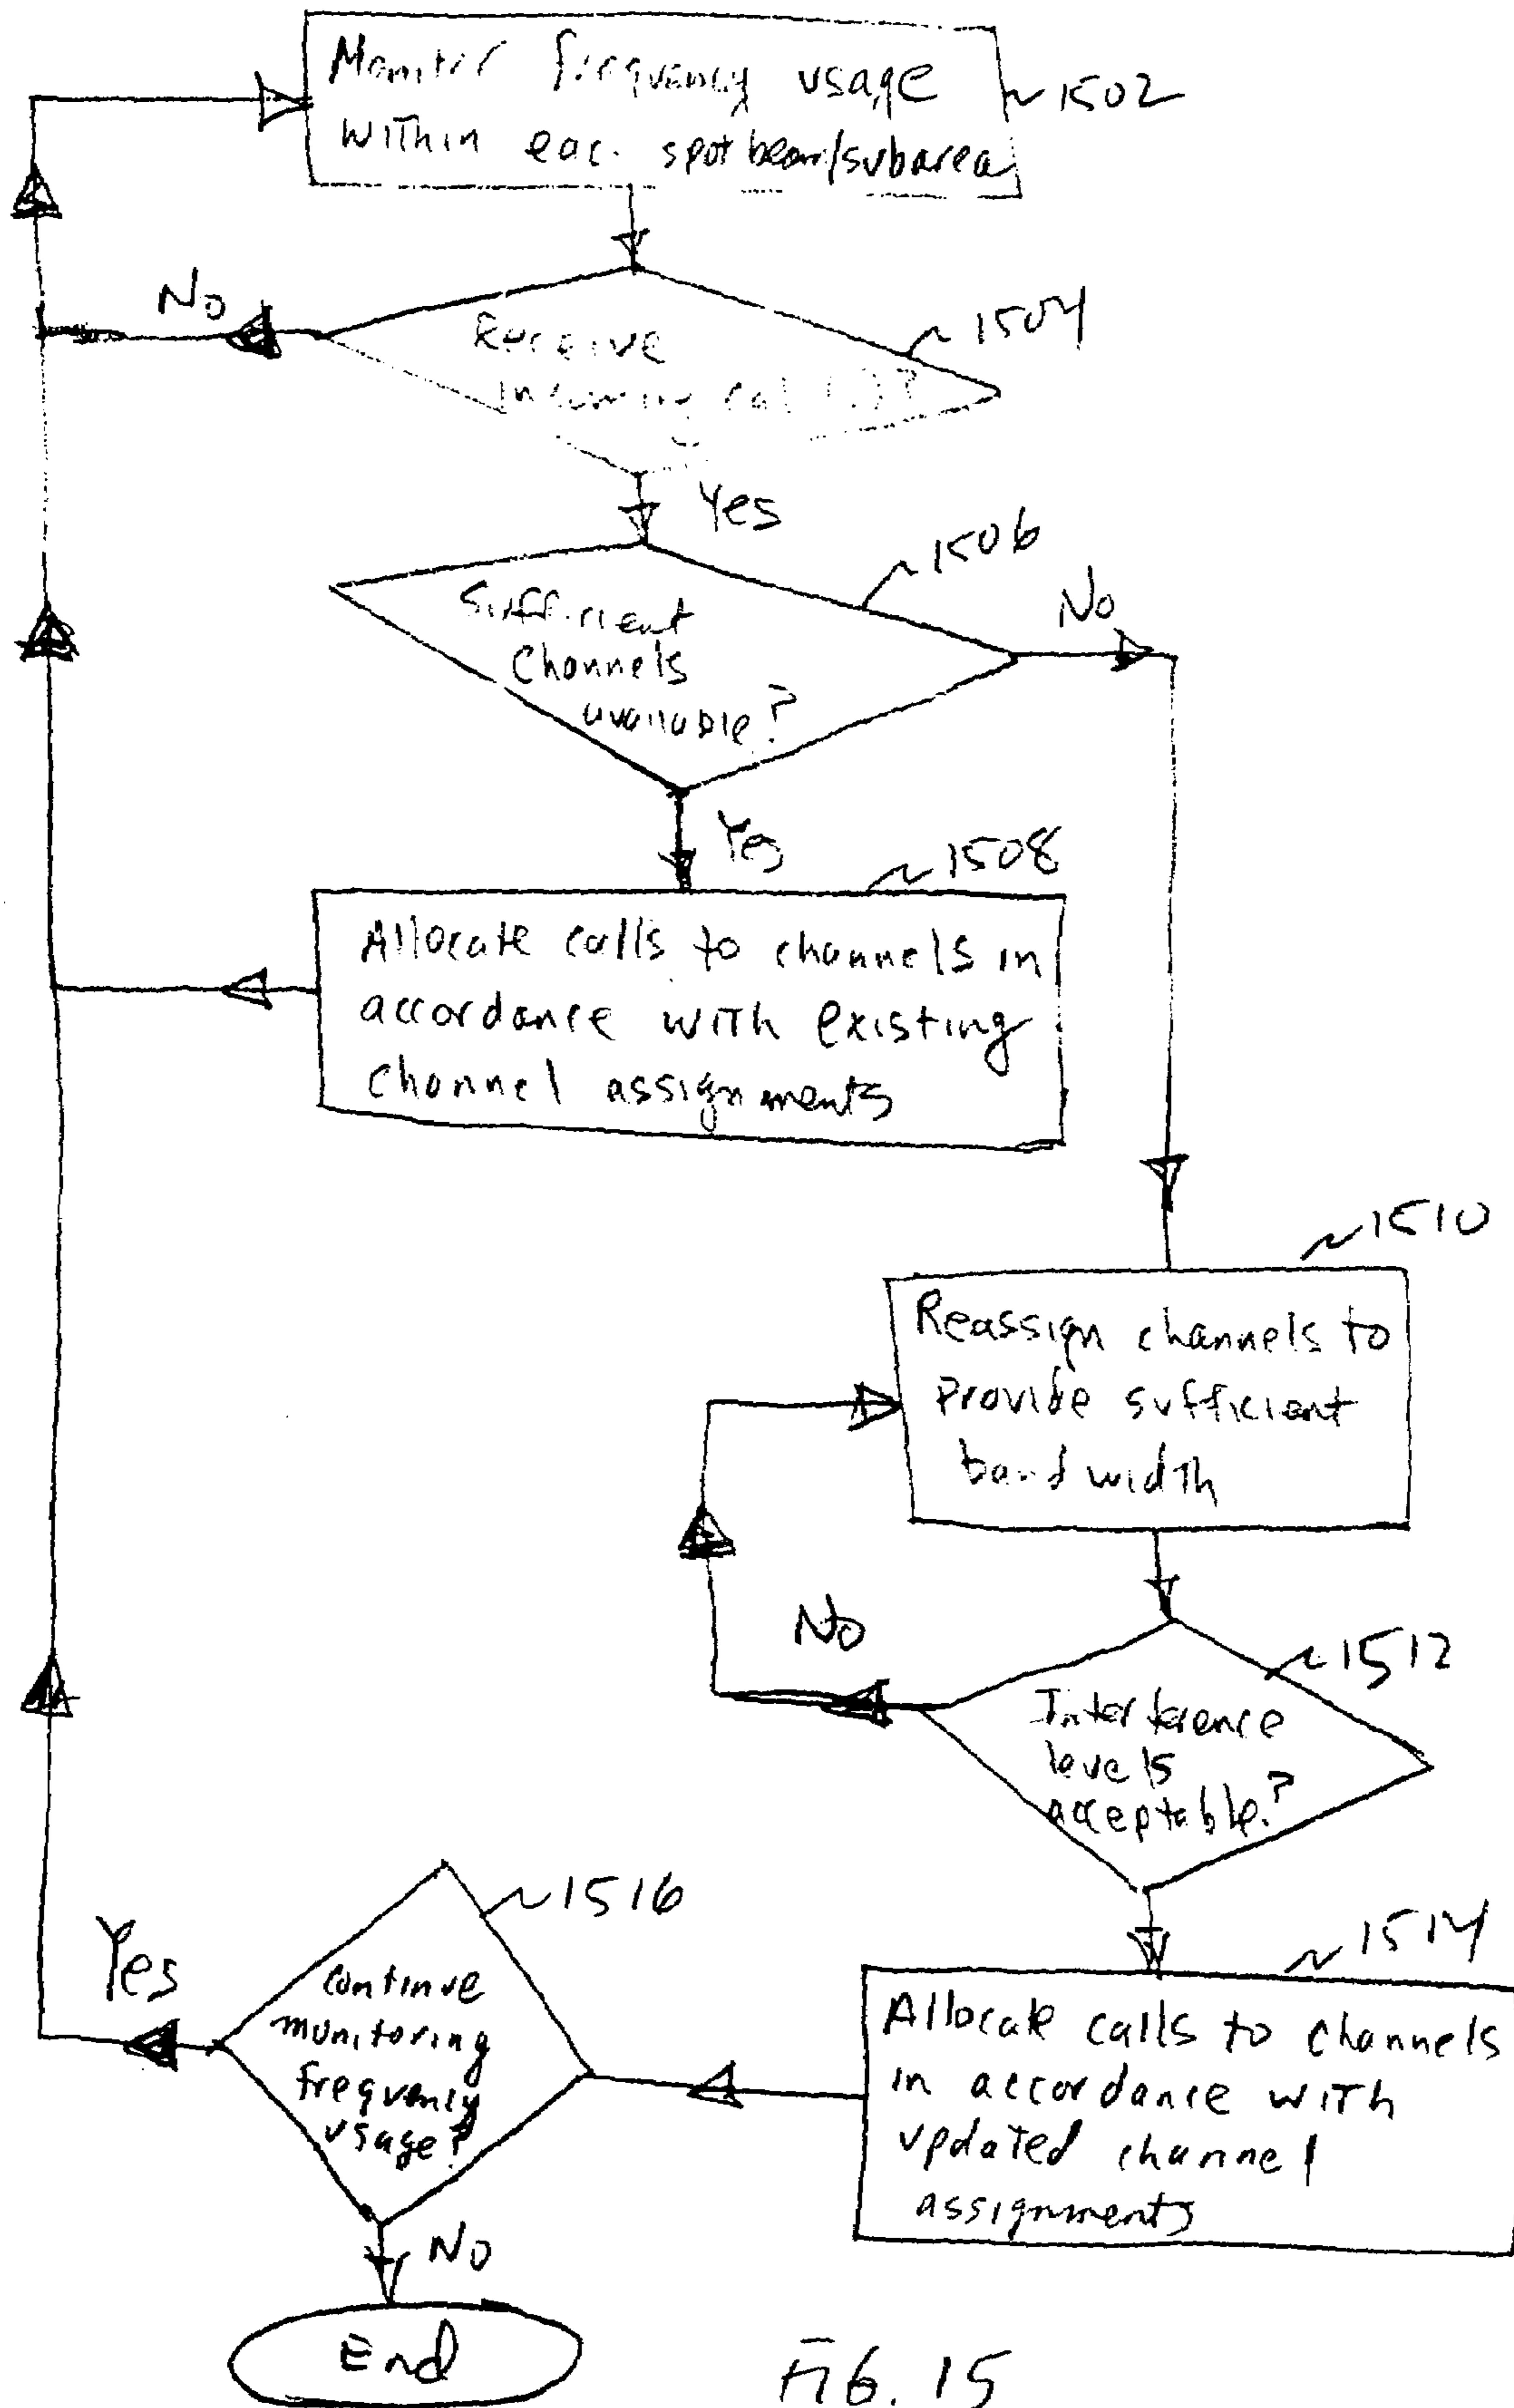 Monitor frequency usage
within eac. spotbeam/subarea
1502
No
Receive
Incoming call(s)?
1504
Yes
1506
Sufficient
Channels
available?
No
Yes
1508
Allocate calls to channels in
accordance with existing
channel assignments
1510
Reassign channels to
Provide sufficient
bandwidth
No
1512
Interference
levels
acceptable?
1514
Allocate calls to channels
in accordance with
updated channel
assignments
1516
Continue
monitoring
frequency
usage?
Yes
No
End
FIG. 15